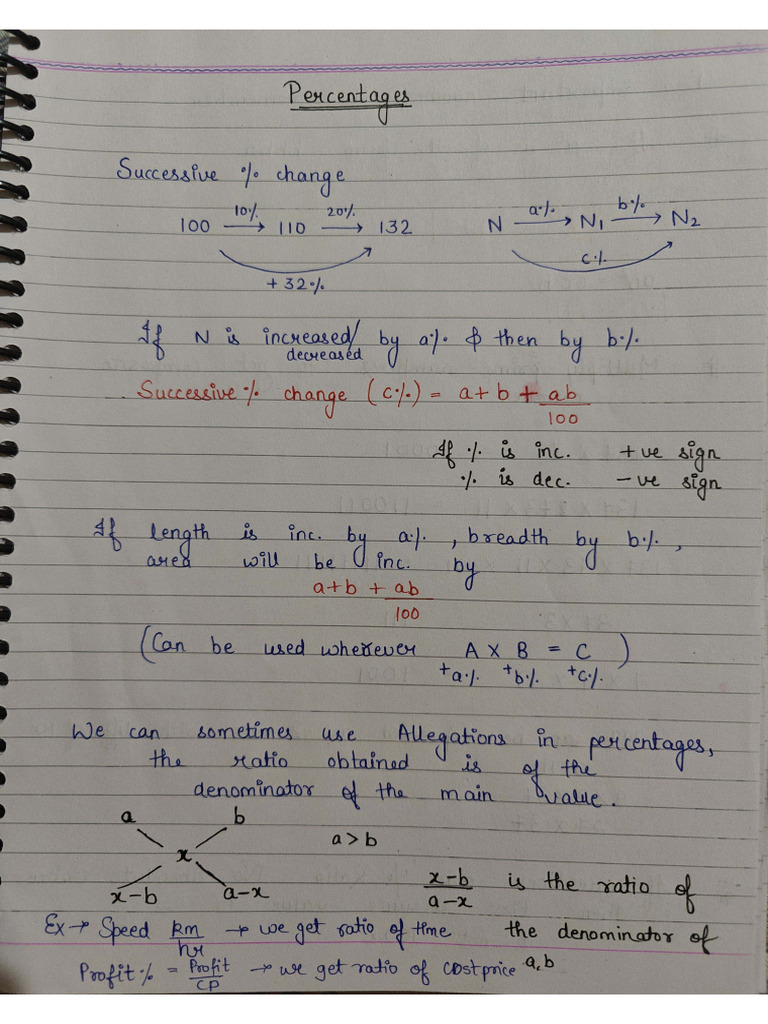 Percentages
Successive % change
100 →10% 110 →20% 132
+ 32%
N →a% N₁ →b% N₂
c%
If N is increased/decreased by a% & then by b%
Successive % change (c%) = a + b + ab/100
If % is inc. +ve sign
% is dec. -ve sign
If length is inc. by a%, breadth by b%,
area will be inc. by
a+b + ab/100
(Can be used wherever A × B = C)
+a% +b% +c%
We can sometimes use Allegations in percentages,
the ratio obtained is of the
denominator of the main value.
a b
x
x-b a-x
a > b
x-b/a-x is the ratio of
the denominator of
a, b
Ex → Speed km/hr → we get ratio of time
Profit% = Profit/CP → we get ratio of cost price